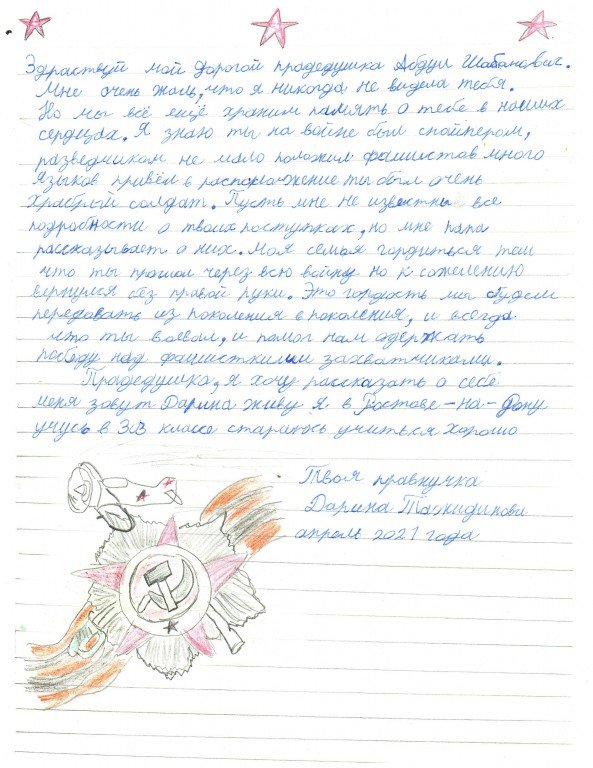 Здраствуй мой дорогой прадедушка Абдул Шабанович.
Мне очень жаль, что я никогда не видела тебя.
Но мы всё ещё храним память о тебе в наших
сердцах. Я знаю ты на войне был снайпером,
разведчиком не мало положил фашистов много
языков привёл в распоряжение ты был очень
храбрый солдат. Пусть мне не известны все
подробности о твоих поступках, но мне папа
рассказывает о них. Моя семья гордиться тем
что ты прошол через всю войну но к сожелению
вернулся без правой руки. Это гордость мы будем
передовать из поколения в поколения, и всегда
что ты воевал, и помог нам одержать
победу над фашисткими захватчиками.
Прадедушка, я хочу рассказать о себе
меня зовут Дарина живу я в Ростове-на-Дону
учусь в 3"В классе стараюсь учиться хорошо
Твоя правнучка
Дарина
апрель 2021 года